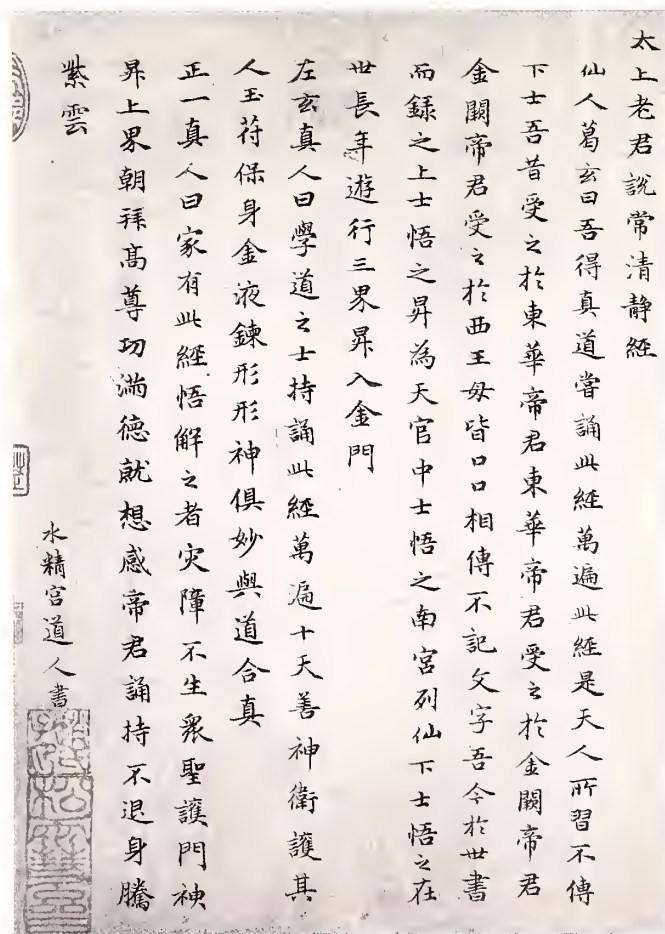 太上老君說常清静經
仙人葛玄曰吾得真道嘗誦此經萬遍此經是天人所習不傳
下士吾昔受之於東華帝君東華帝君受之於金闕帝君
金闕帝君受之於西王母皆口口相傳不記文字吾今於世書
而録之上士悟之昇為天官中士悟之南宮列仙下士悟之在
世長年遊行三界昇入金門
左玄真人曰學道之士持誦此經萬遍十天善神衛護其
人玉苻保身金液鍊形形神俱妙與道合真
正一真人曰家有此經悟解之者灾障不生衆聖護門神
昇上界朝拜髙尊功滿德就想感帝君誦持不退身騰
紫雲
水精宮道人書